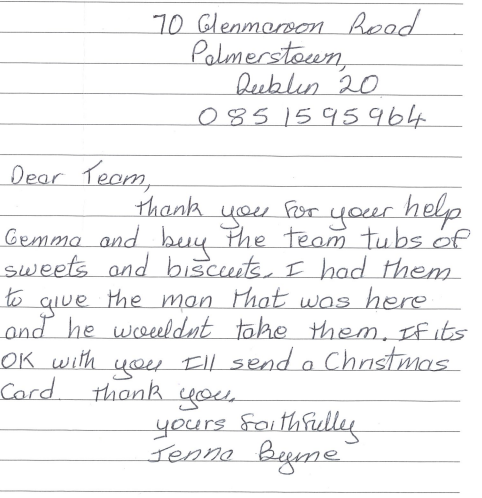 70 Glenmaroon Road
Palmerstown,
Dublin 20
0851595964
Dear Team,
thank you for your help
Gemma and buy the team tubs of
sweets and biscuits. I had them
to give the man that was here
and he wouldnt take them. If its
OK with you I'll send a Christmas
Card thank you.
yours faithfully
Jenna Byrne